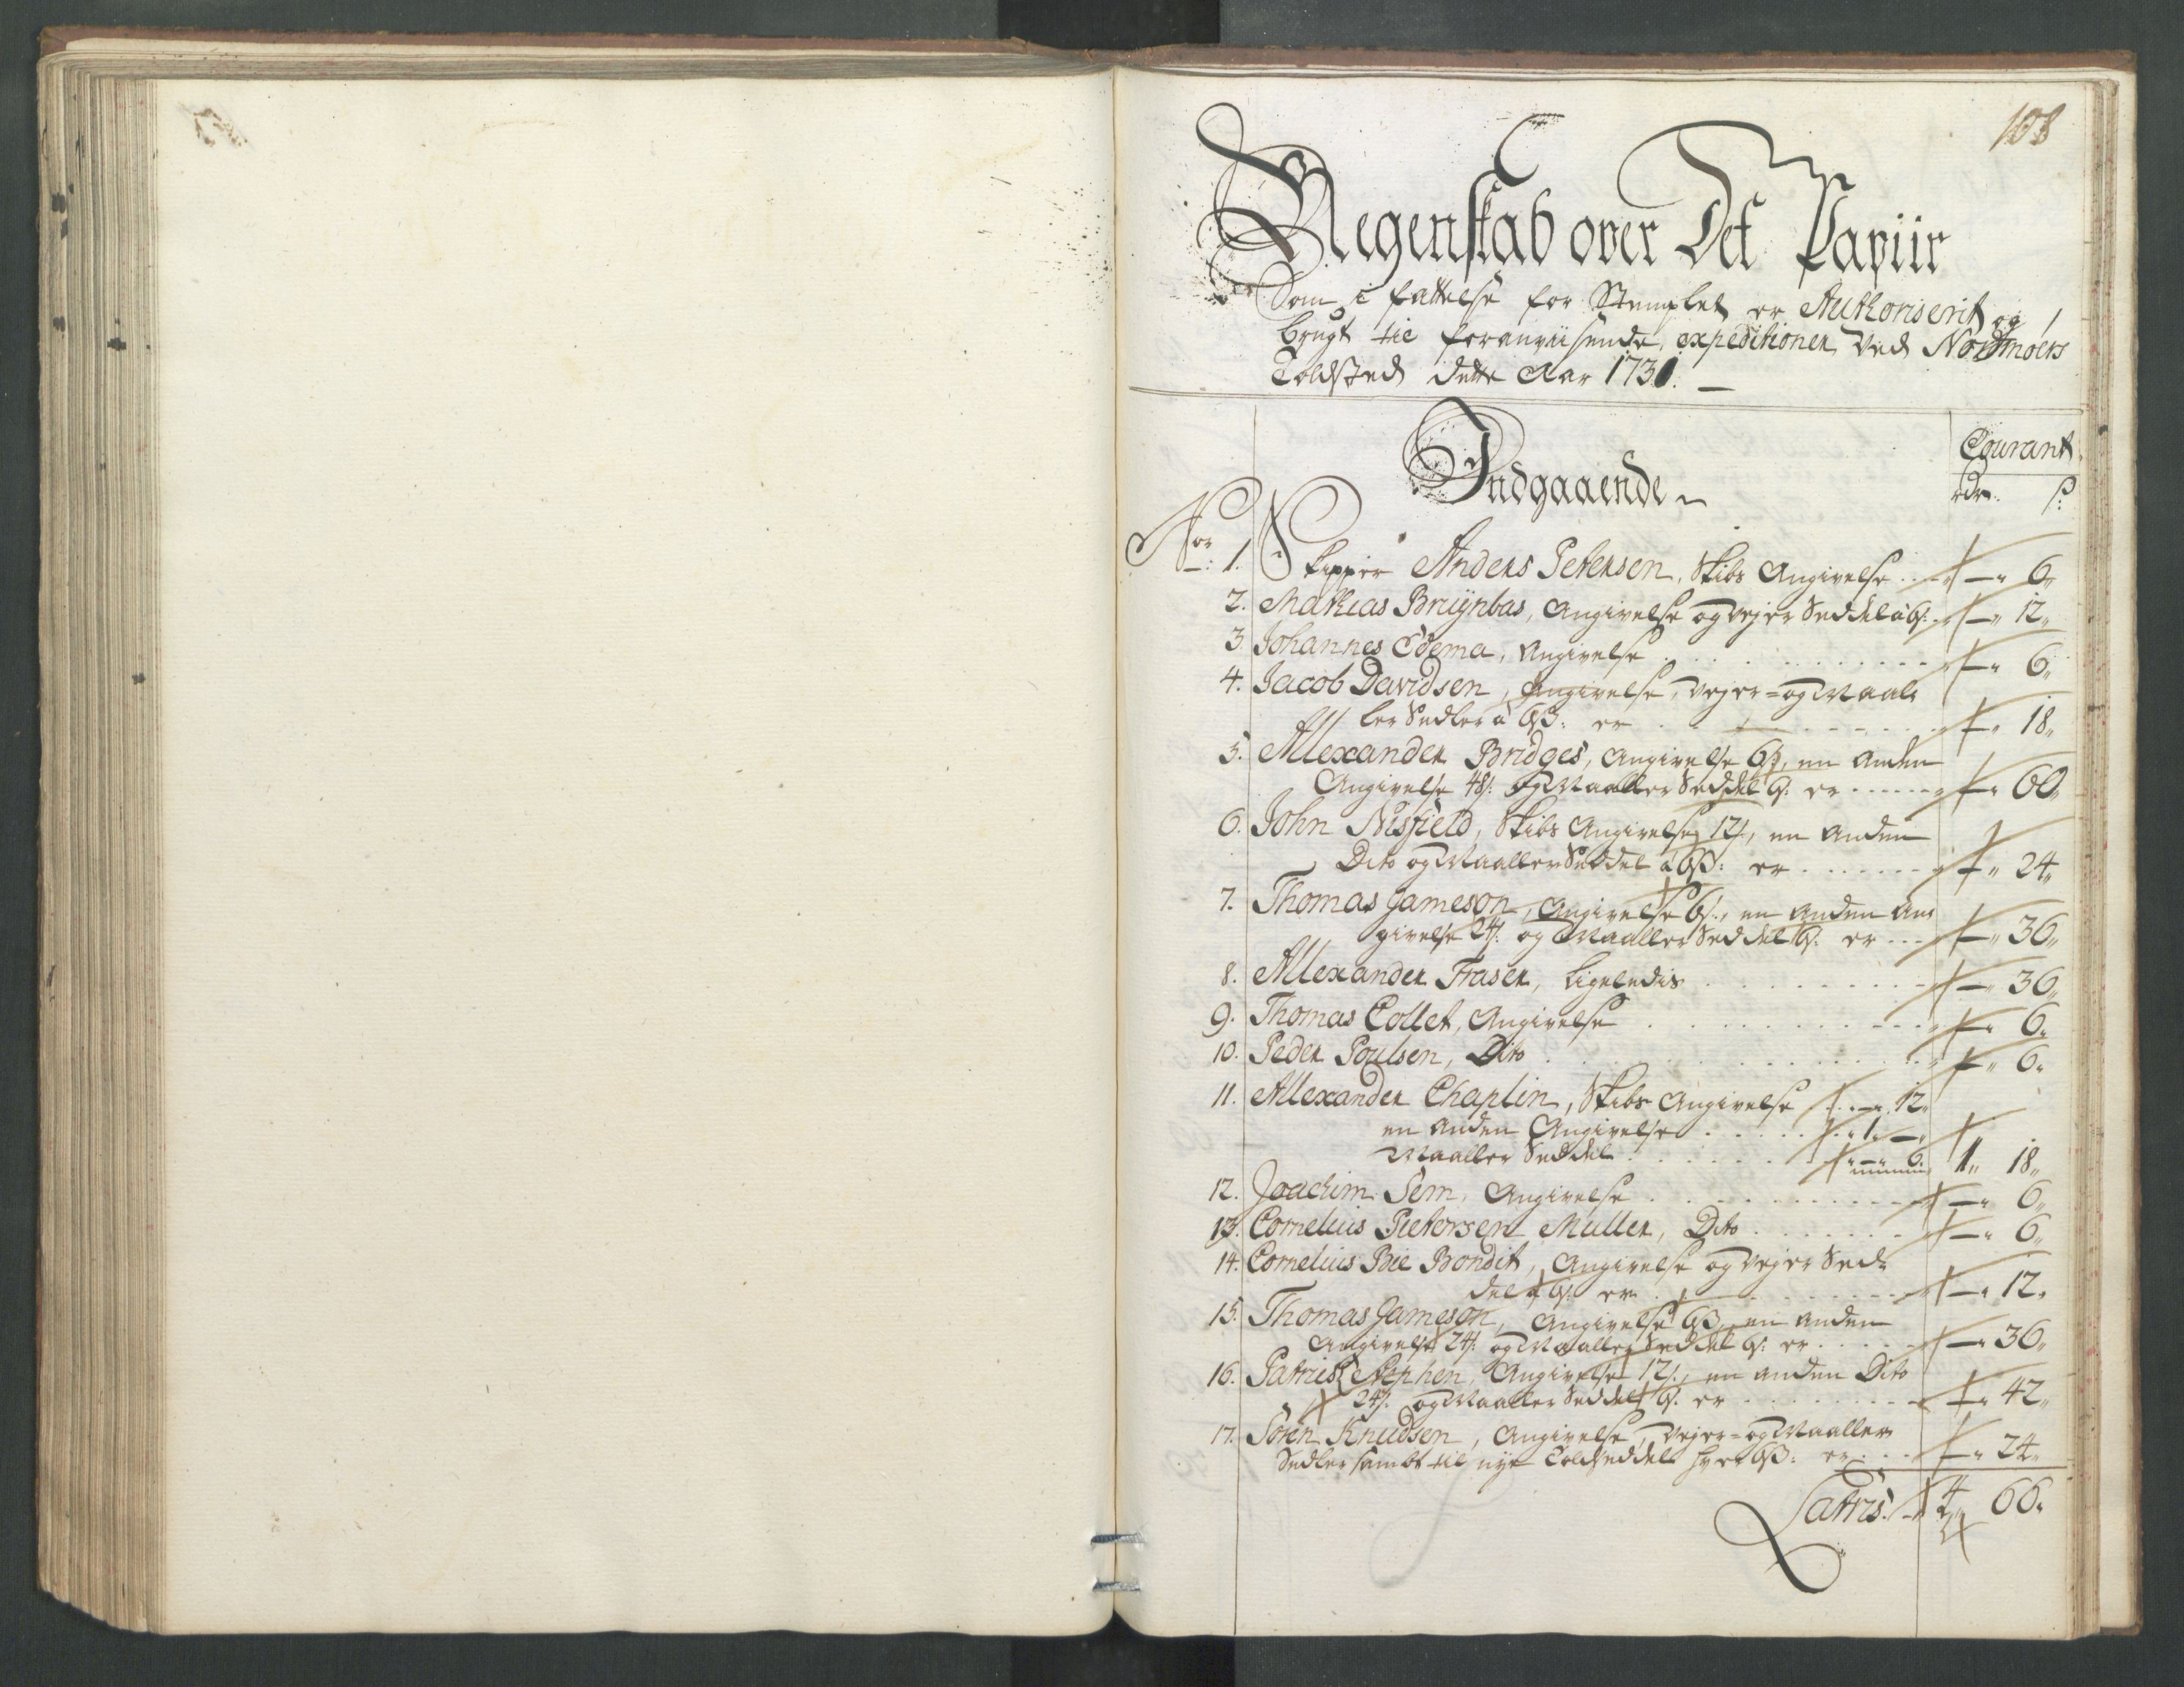 108
Regenskab over Det Papiir
Som i fattelse for Stemplet er Authoriserit og
brugt til foranviisende expeditioner ved Nordmoers
Toldsted dette Aar 1731.
Courant
Indgaaende
rdr. ß:
No: 1. Skipper Anders Petersen, Skibs Angivelse . . — „ 6„
2. Mathias Bruÿnbas, Angivelse og Vejer Seddel à 6ß: — „ 12„
3. Johannes Edema, Angivelse . . . — „ 6„
4. Jacob Davidsen, Angivelse, Vejer= og Maal¬
ler Sedler à 6ß: er . . . — „ 18„
5. Allexander Bridges, Angivelse 6ß, en anden
Angivelse 48ß: og Maaller Seddel 6ß: er . . . — „ 60„
6. John Nisfield, Skibs Angivelse 12ß, en anden
Dito og Maaller Seddel à 6ß: er . . . — „ 24„
7. Thomas Jameson, Angivelse 6ß:, en anden An¬
givelse 24ß: og Maaller Seddel 6ß: er . . . — „ 36„
8. Allexander Fraser, ligeledis . . . — „ 36„
9. Thomas Collet, Angivelse . . . — „ 6„
10. Peder Poulsen, Dito . . . — „ 6„
11. Allexander Chaplin, Skibs Angivelse . . — „ 12„
en anden Angivelse . . . „ 1„ —„
Maaller Seddel . . . „ — „ 6„ 1„ 18„
12. Joachim Sem, Angivelse . . . — „ 6„
13. Cornelius Pietersen Muller, Dito . . . — „ 6„
14. Cornelius Bie Bondit, Angivelse og Vejer Sed¬
del à 6ß: er . . . — „ 12„
15. Thomas Jameson, Angivelse 6ß, en anden
Angivelse 24ß: og Maaller Seddel 6ß: er . . . — „ 36„
16. Patrick Stephen, Angivelse 12ß:, en anden Dito
24ß: og Maaller Seddel 6ß: er . . . — „ 42„
17. Sören Knudsen, Angivelse, Vejer= og Maaller
Sedler samt til nye Toldseddel hver 6ß: er . . . — „ 24„
Latris . . 4„ 66„